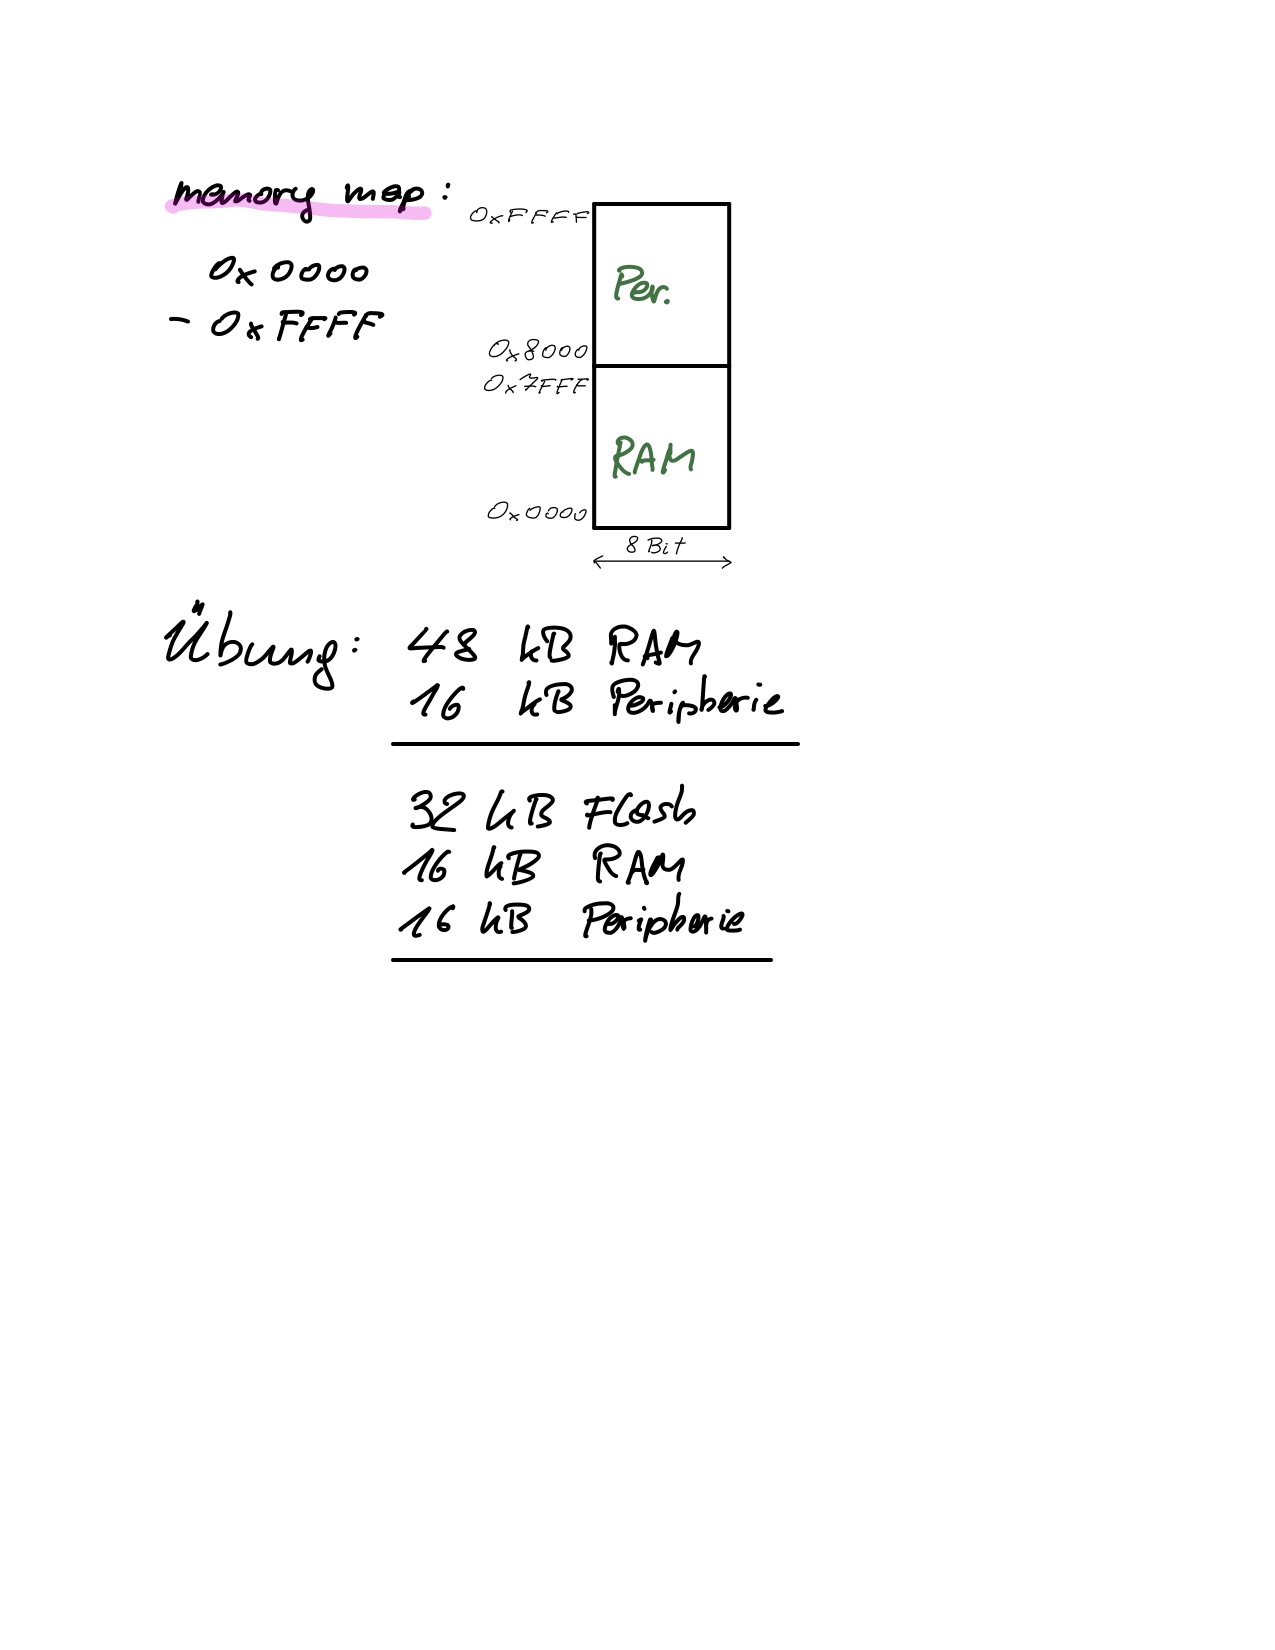 memory map:
0x0000
- 0xFFFF
0xFFFF
Per.
0x8000
0x7FFF
RAM
0x0000
8 Bit
Übung: 48 kB RAM
16 kB Peripherie
32 kB Flash
16 kB RAM
16 kB Peripherie